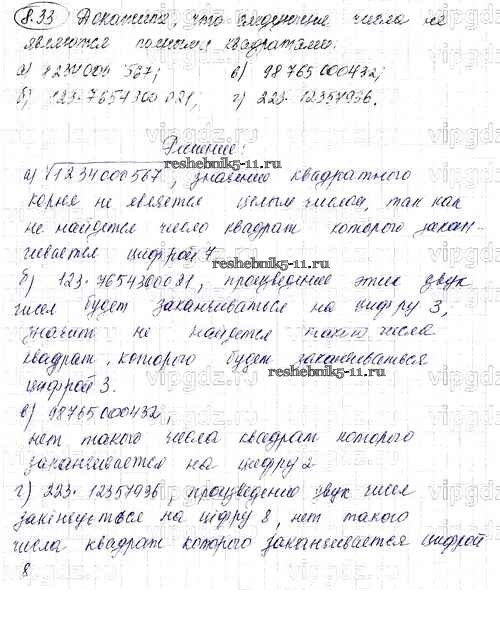 8.33 Докажите, что следующие числа не
являются полными квадратами:
а) 1234000567; в) 98765000432;
б) 123·7654300021; г) 223·12357936.
Решение:
reshebnik5-11.ru
а) √1234000567, значение квадратного
корня не является целым числом, так как
не найдется число квадрат которого закан-
чивается цифрой 7
reshebnik5-11.ru
б) 123·7654300021, произведение этих двух
чисел будет заканчиваться на цифру 3,
значит не найдется такого числа
квадрат, которого будет заканчиваться
reshebnik5-11.ru
цифрой 3.
в) 98765000432,
нет такого числа квадрат которого
заканчивается на цифру 2
г) 223·12357936, произведение двух чисел
закінчується на цифру 8, нет такого
числа квадрат которого заканчивается цифрой
8